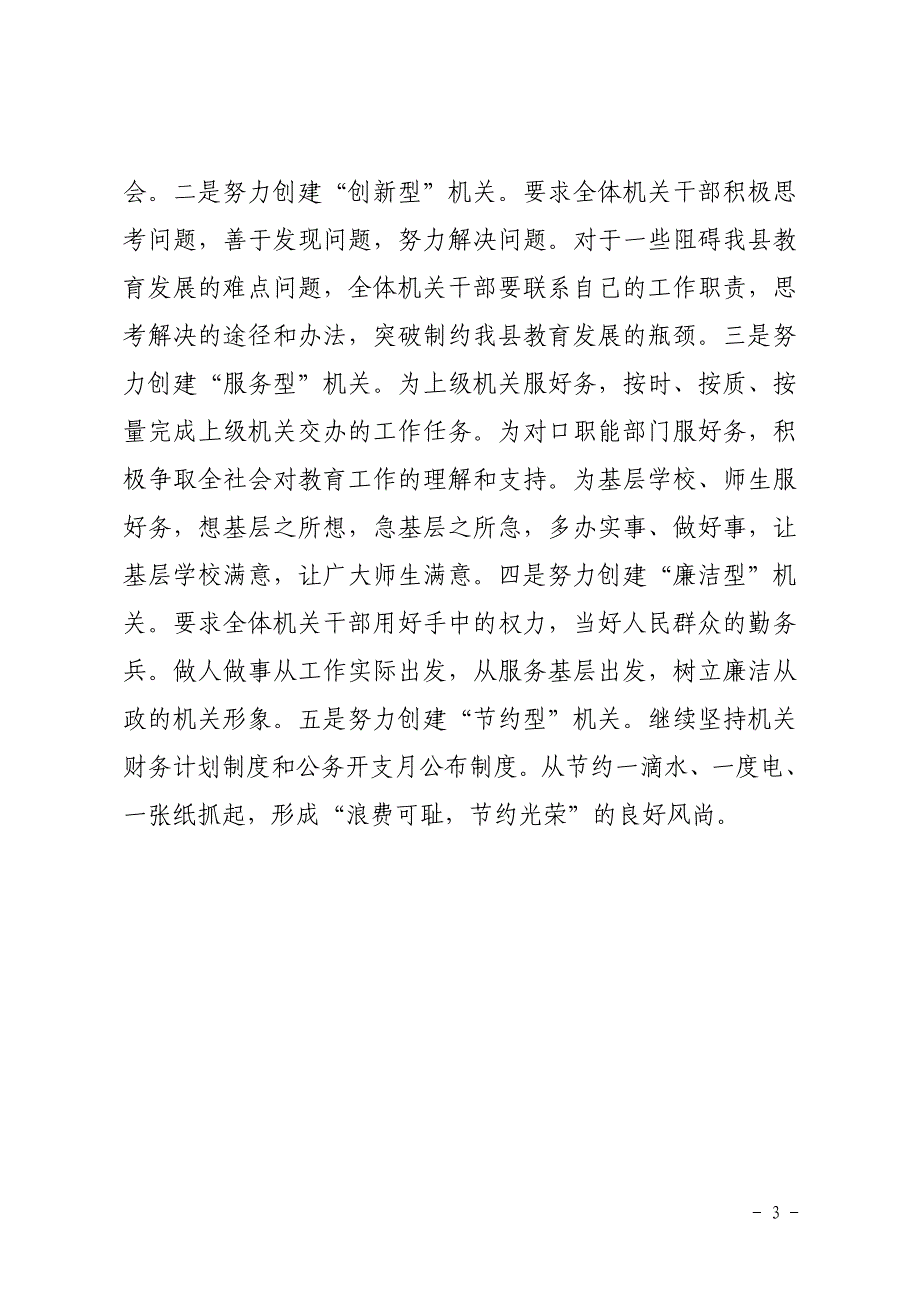 会。二是努力创建“创新型”机关。要求全体机关干部积极思
考问题，善于发现问题，努力解决问题。对于一些阻碍我县教
育发展的难点问题，全体机关干部要联系自己的工作职责，思
考解决的途径和办法，突破制约我县教育发展的瓶颈。三是努
力创建“服务型”机关。为上级机关服好务，按时、按质、按
量完成上级机关交办的工作任务。为对口职能部门服好务，积
极争取全社会对教育工作的理解和支持。为基层学校、师生服
好务，想基层之所想，急基层之所急，多办实事、做好事，让
基层学校满意，让广大师生满意。四是努力创建“廉洁型”机
关。要求全体机关干部用好手中的权力，当好人民群众的勤务
兵。做人做事从工作实际出发，从服务基层出发，树立廉洁从
政的机关形象。五是努力创建“节约型”机关。继续坚持机关
财务计划制度和公务开支月公布制度。从节约一滴水、一度电、
一张纸抓起，形成“浪费可耻，节约光荣”的良好风尚。
－ 3 －